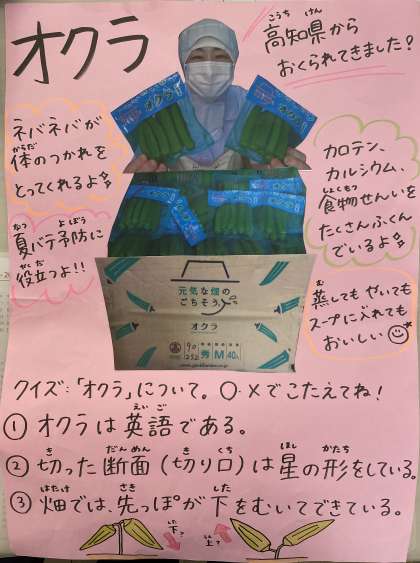 オクラ
高知県から
こうち けん
おくられてきました!
オクラ
オクラ
ネバネバが
体のつかれを
からだ
とってくれるよ
夏バテ予防に
なつ よぼう
役立つよ!!
やくだ
カロテン、
カルシウム、
食物せんいを
しょくもつ
たくさんふくん
でいるよ
元気な畑の
ごちそう。
オクラ
秀 M 40
蒸しても やいても
む
スープに入れても
おいしい
クイズ:「オクラ」について。○・×でこたえてね!
① オクラは英語である。
えいご
② 切った断面(切り口)は星の形をしている。
き だんめん き くち ほし かたち
③ 畑では、先っぽが下をむいてできている。
はたけ さき した
下?
した
上?
うえ